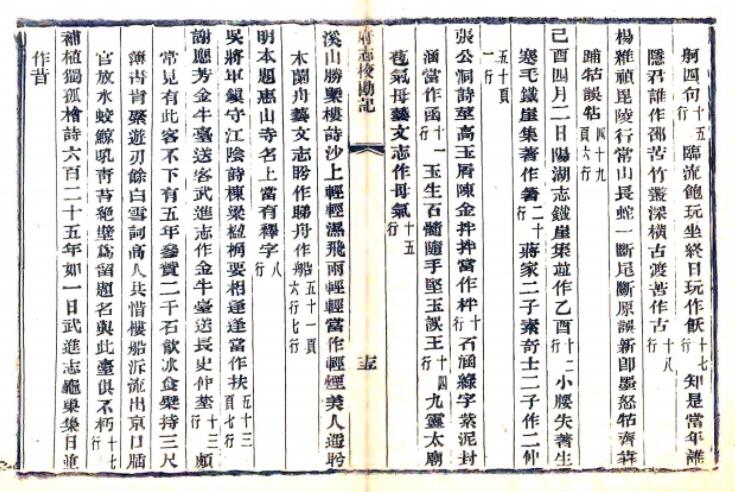 舸四句十五行臨流飽玩坐終日玩作飫十七行知是當年誰
隱君誰作邵苦竹叢深橫古渡苦作古十八行
楊維禎毘陵行常山長蛇一斷尾斷原誤新郎墨怒牯齊犇
踊牯誤牯四十九頁六行
己酉四月二日陽湖志鐵崖集並作乙酉十二行小腰失著生
寒毛鐵崖集著作箸二十行蔣家二子素奇士二子作二仲
五十頁一行
張公洞詩莖高玉屑陳金拌拌當作柈十行石涵綠字紫泥封
涵當作函十一行玉生石髓隨手堅玉誤王十四行九靈太廟
蒼氣母藝文志作母氣十五行
府志校勘記
溪山勝槩樓詩沙上輕輕濕飛雨輕輕當作輕煙美人遙盼
木蘭舟藝文志盼作睇舟作船五十一頁六行七行
明本題惠山寺名上當有釋字八行
吳將軍鎮守江陰詩棟梁楹桷要相逢逢當作扶五十三頁七行
謝應芳金牛臺送客武進志作金牛臺送長史仲塋十三行頗
常見有此客不下有五年參贊二千石飲冰食檗持三尺
簿書肯綮遊刃餘白雪詞高人共惜樓船泝流出京口牐
官放水蛟鯨吼青苔絕壁爲留題名與此臺俱不朽十七行
補植獨孤檜詩六百二十五年如一日武進志龜巢集日並
作昔